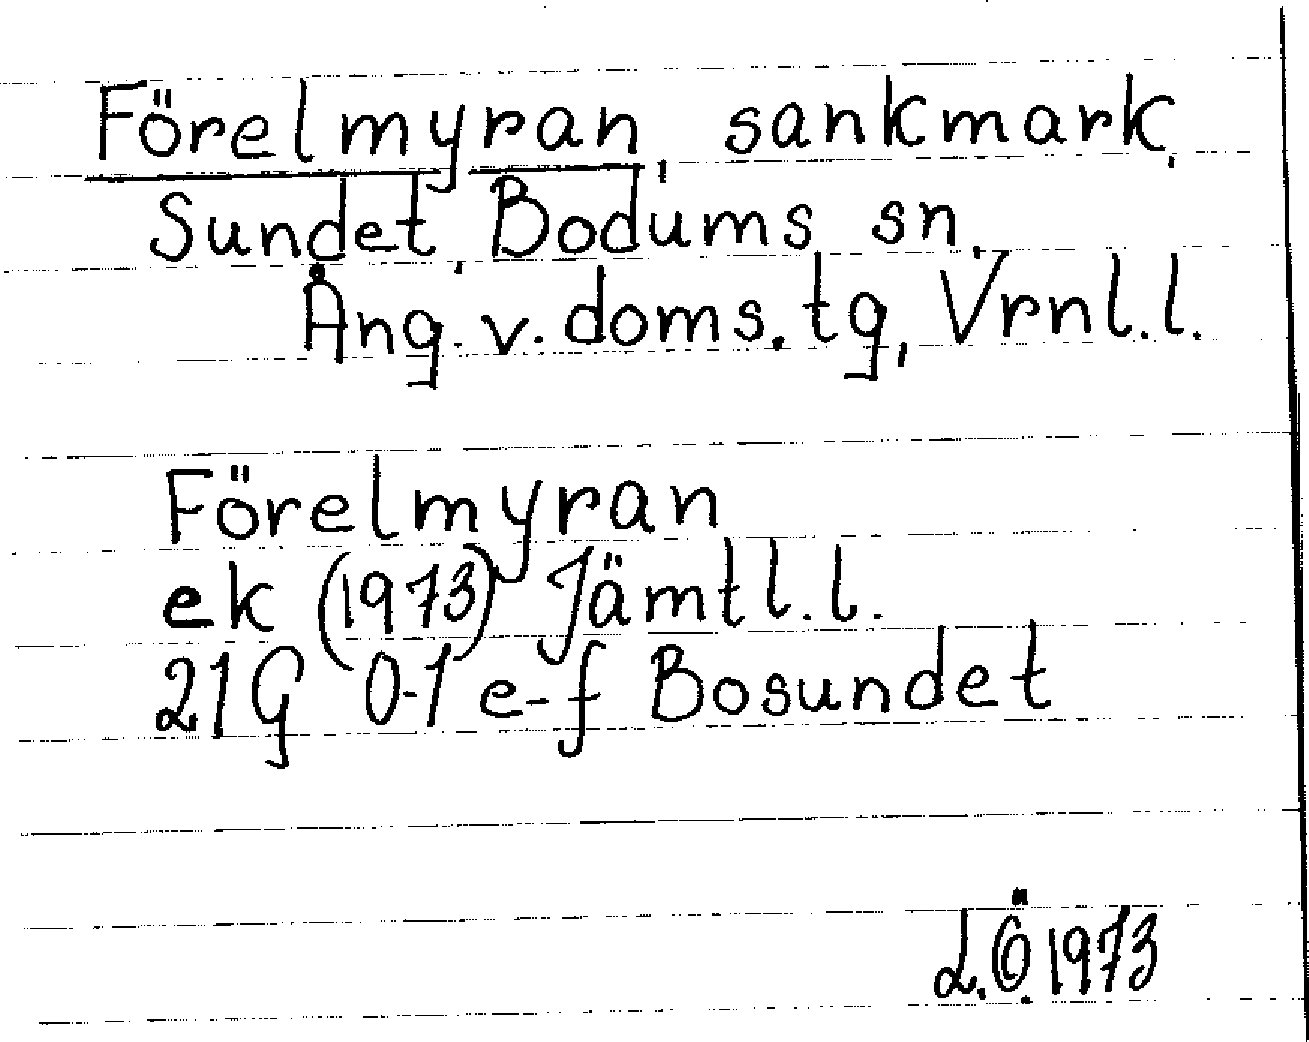 Förelmyran, sankmark,
Sundet, Bodums sn.
Ång. v. doms. tg, Vrnl.l.
Förelmyran
ek (1973) Jämtl.l.
21G 0-1 e-f Bosundet
L.Ö. 1973